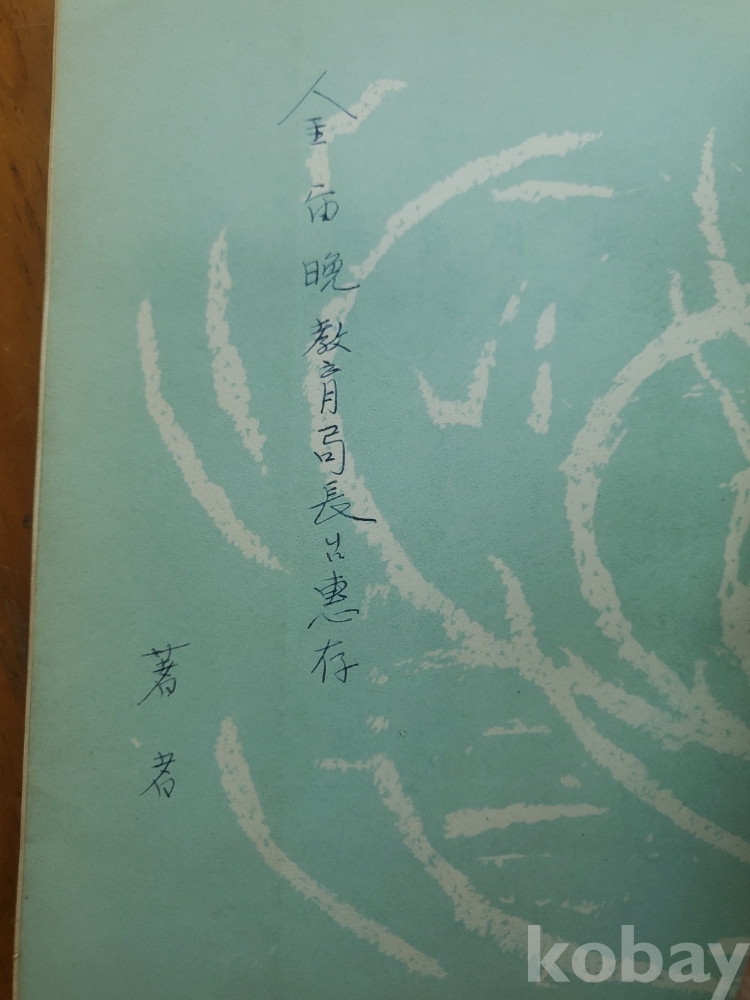 金 晩 教育局長 惠存
著者
kobay